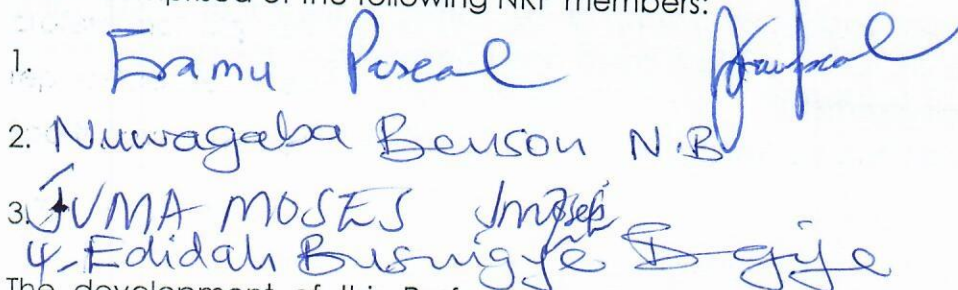 of the following NRF members:
1. Eramu Pascal
2. Nuwagaba Benson N.B
3. JUMA MOSES Jmoses
4. Edidah Busingye B-gije
The development of this